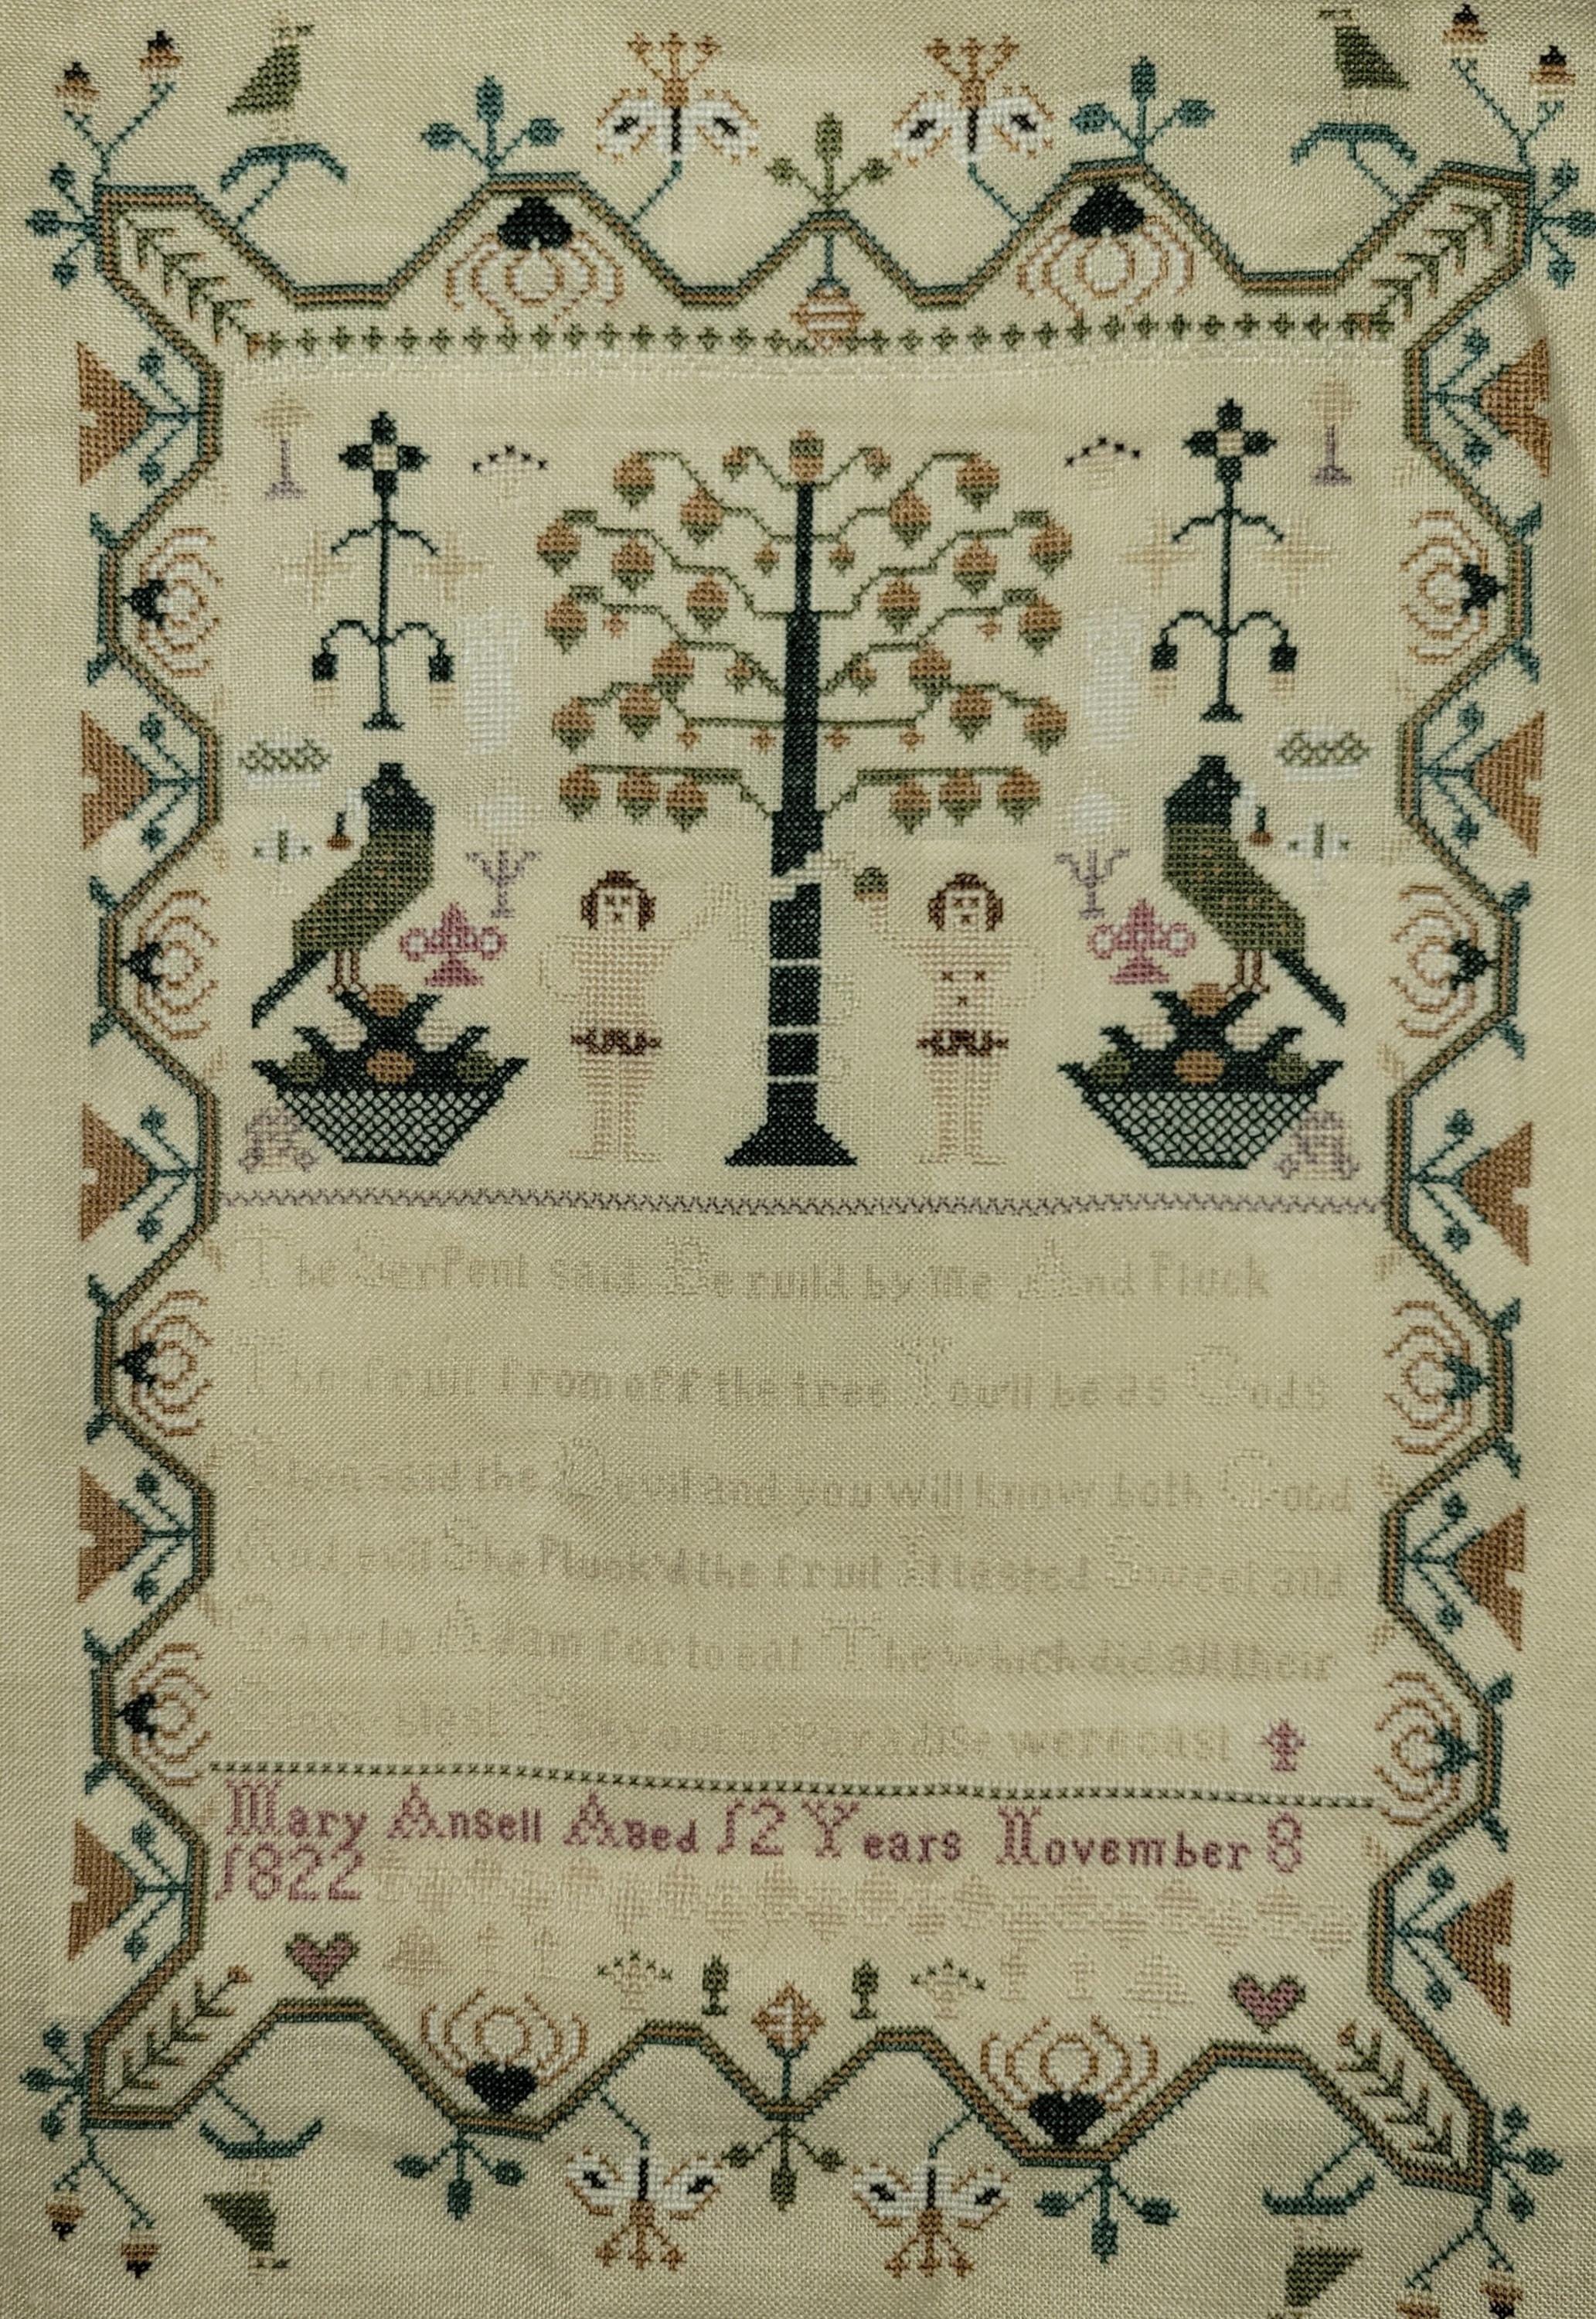 The Serpent Said Be ruld by me And Pluck
The fruit from off the tree You'll be as Gods
Then said the Devil and you will know both Good
And evil She Pluck'd the fruit It tasted Sweet and
Gave to Adam for to eat They which did all their
blest were cast
Mary Ansell Aged 12 Years November 8
1822